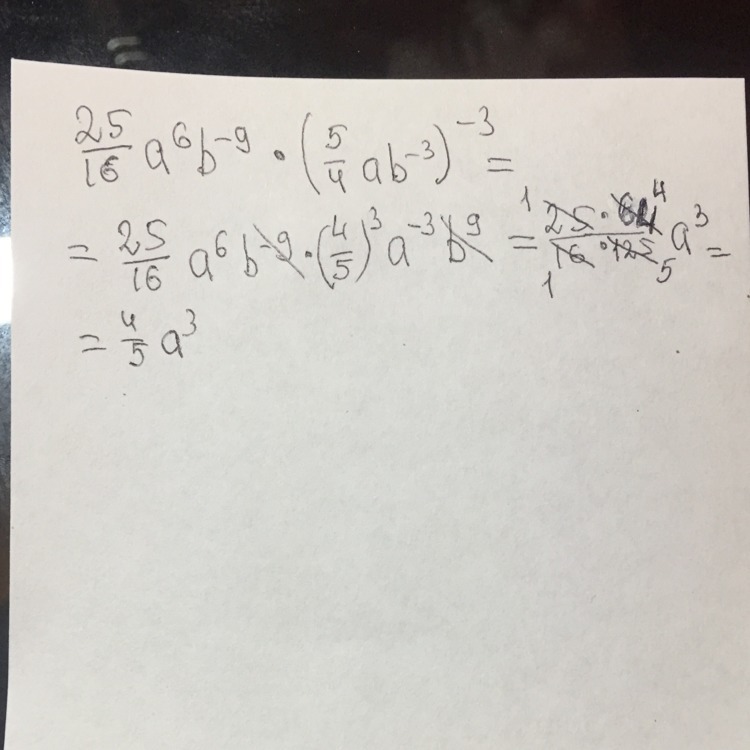 25/16 a⁶b⁻⁹ · (5/4 ab⁻³)⁻³ =
= 25/16 a⁶ b⁻⁹ · (4/5)³ a⁻³ b⁹ = (¹25 · 64⁴)/(₁16 · 125₅) a³ =
= 4/5 a³